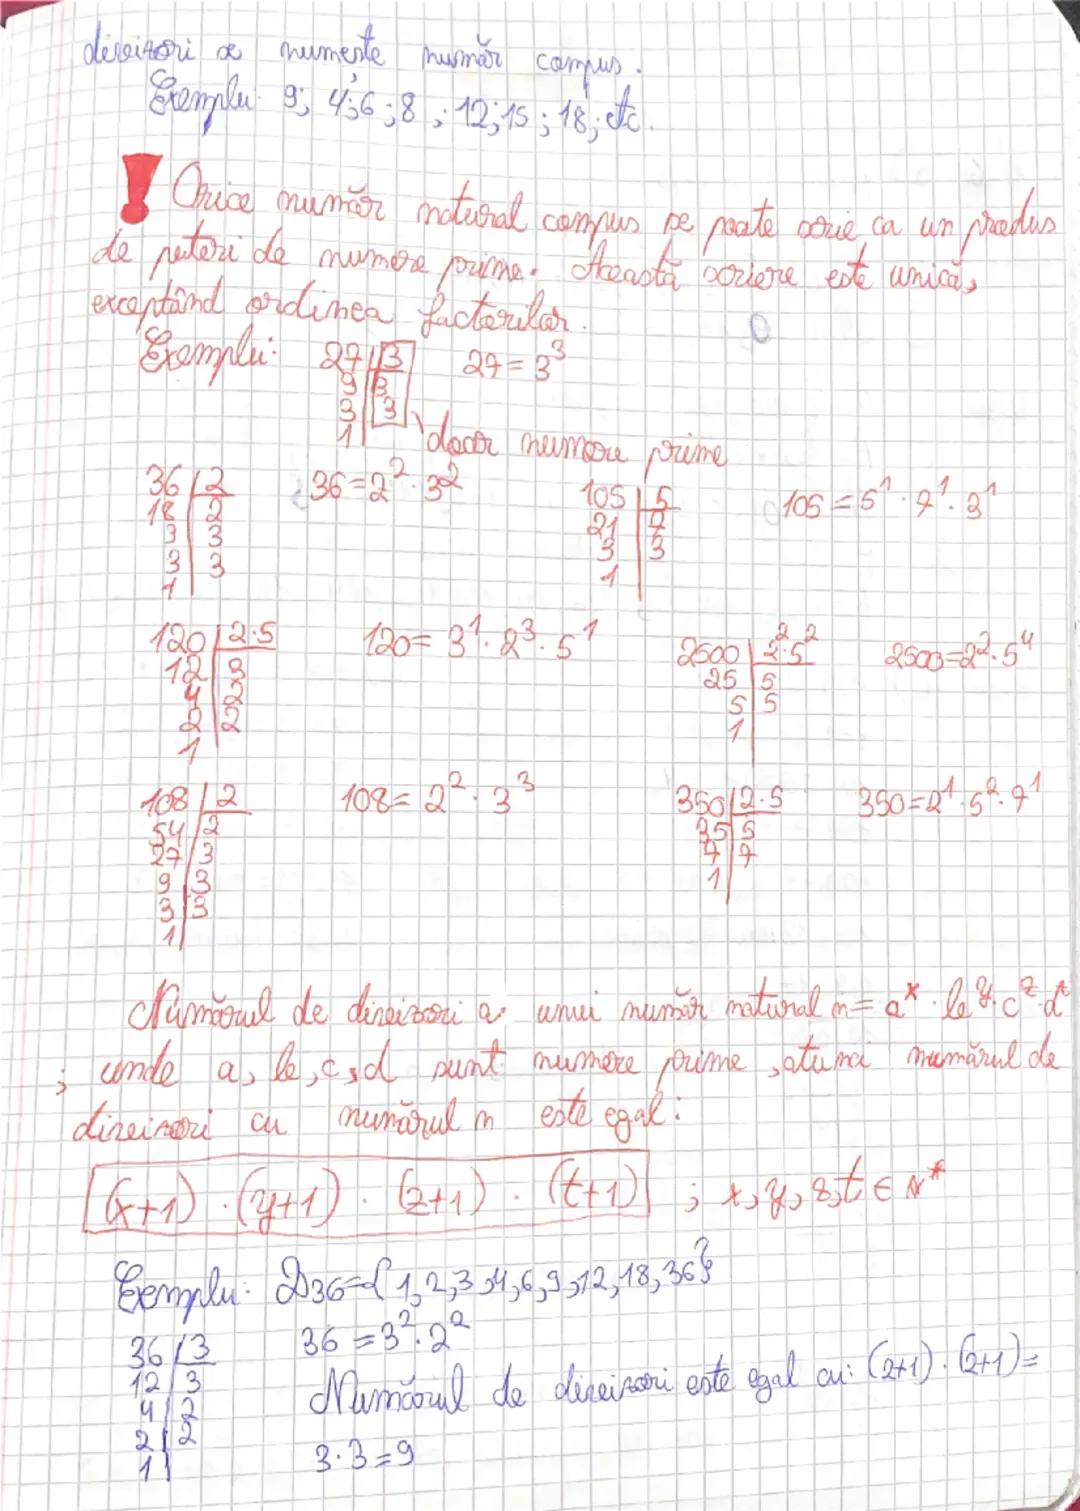 divizori se numește număr compus.
Exemplu: 9; 4; 6; 8; 12; 15; 18; etc.
! Orice număr natural compus pe poate scrie ca un produs
de puteri de numere prime. Această scriere este unică,
exceptând ordinea factorilor.
Exemplu: 27 | 3 27 = 3³
9 | 3
3 | 3
1 | doar numere prime
36 | 2 36 = 2² · 3² 105 | 5 105 = 5¹ · 7¹ · 3¹
18 | 2 21 | 7
3 | 3 3 | 3
3 | 3 1
1
120 | 2·5 120 = 3¹ · 2³ · 5¹ 2500 | 2²·5² 2500 = 2² · 5⁴
12 | 3 25 | 5
4 | 2 5 | 5
2 | 2 1
1
108 | 2 108 = 2² · 3³ 350 | 2·5 350 = 2¹ · 5² · 7¹
54 | 2 35 | 5
27 | 3 7 | 7
9 | 3 1
3 | 3
1
Numărul de divizori a unui număr natural n = aˣ · bʸ · cᶻ · dᵗ
; unde a, b, c, d sunt numere prime, atunci numărul de
divizori cu numărul n este egal:
(x+1) · (y+1) · (z+1) · (t+1) ; x, y, z, t ∈ N*
Exemplu: D36 = {1, 2, 3, 4, 6, 9, 12, 18, 36}
36 | 3 36 = 3² · 2²
12 | 3 Numărul de divizori este egal cu: (2+1) · (2+1) =
4 | 2
2 | 2 3 · 3 = 9
1